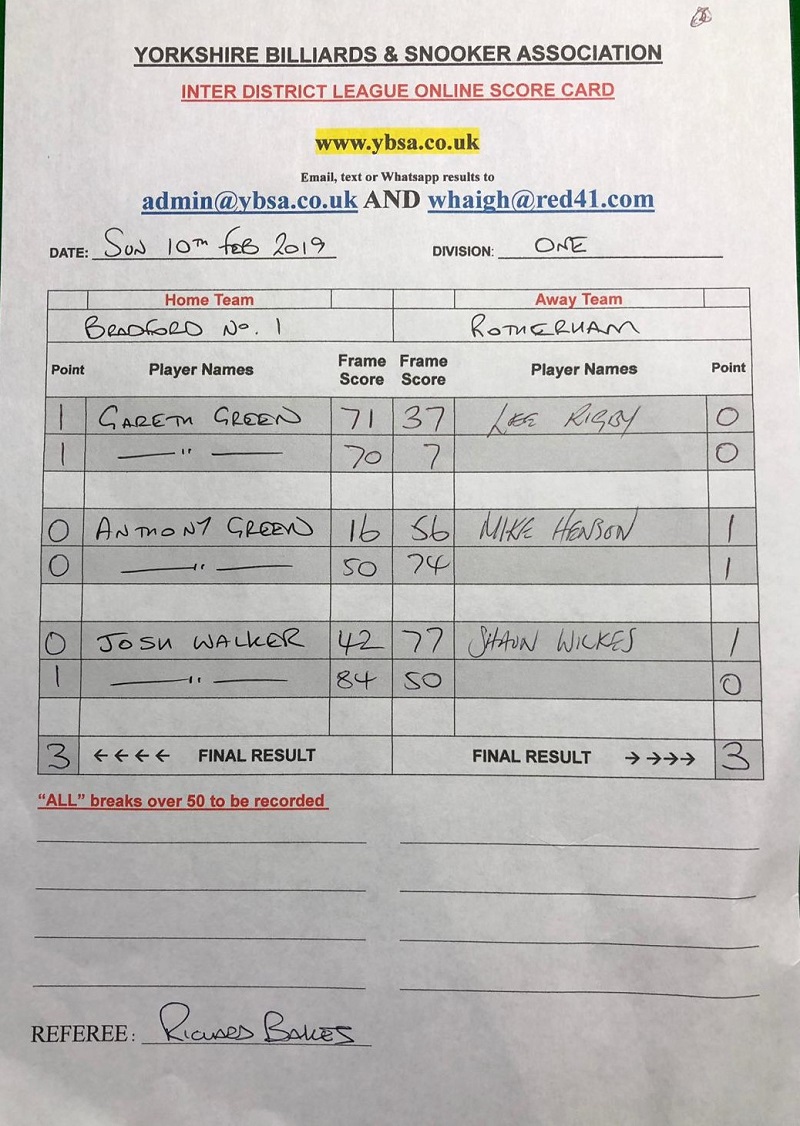 YORKSHIRE BILLIARDS & SNOOKER ASSOCIATION
INTER DISTRICT LEAGUE ONLINE SCORE CARD
www.ybsa.co.uk
Email, text or Whatsapp results to
admin@ybsa.co.uk AND whaigh@red41.com
DATE: SUN 10TH FEB 2019 DIVISION: ONE
Home Team Away Team
BRADFORD No. 1 ROTHERHAM
Point Player Names Frame Score Frame Score Player Names Point
1 GARETH GREEN 71 37 LEE RIGBY 0
1 — " — 70 7 0
0 ANTHONY GREEN 16 56 MIKE HENSON 1
0 — " — 50 74 1
0 JOSH WALKER 42 77 SHAUN WICKES 1
1 — " — 84 50 0
3 ←←←← FINAL RESULT FINAL RESULT →→→→ 3
“ALL” breaks over 50 to be recorded
REFEREE: RICHARD BAKES